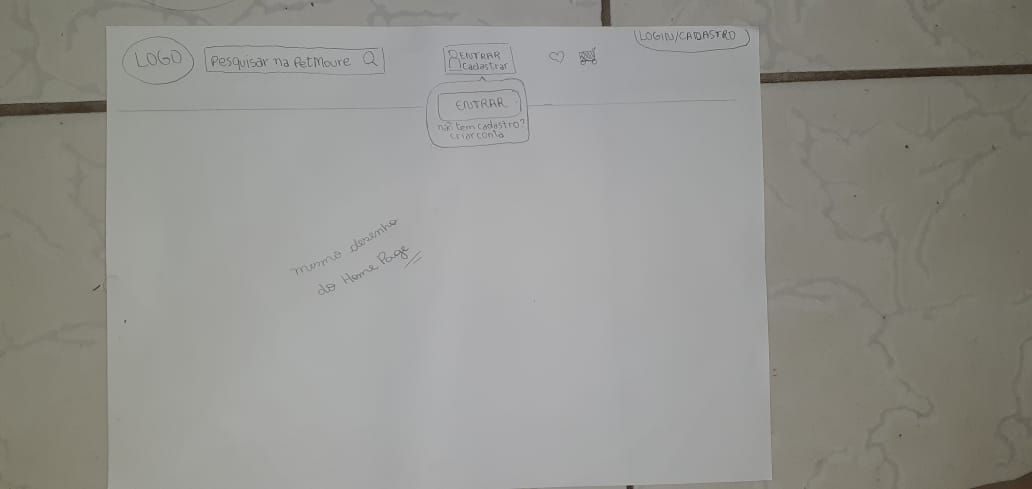 LOGIN/CADASTRO
LOGO
Pesquisar na PetMoure
ENTRAR
Cadastrar
ENTRAR
não tem cadastro?
criar conta
mesmo desenho
do Home Page